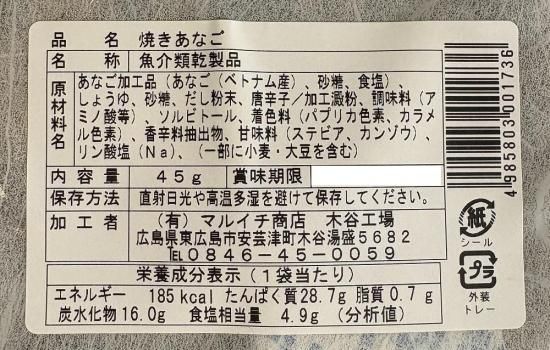 品 名 焼きあなご
名 称 魚介類乾製品
原材料名
あなご加工品（あなご（ベトナム産）、砂糖、食塩）
しょうゆ、砂糖、だし粉末、唐辛子／加工澱粉、調味料（ア
ミノ酸等）、ソルビトール、着色料（パプリカ色素、カラメ
ル色素）、香辛料抽出物、甘味料（ステビア、カンゾウ）、
リン酸塩（Ｎａ）、（一部に小麦・大豆を含む）
内 容 量 ４５ｇ 賞味期限
保存方法 直射日光や高温多湿を避けて保存してください。
加 工 者 （有）マルイチ商店 木谷工場
広島県東広島市安芸津町木谷湯盛５６８２
℡０８４６－４５－００５９
栄養成分表示（１袋当たり）
エネルギー 185 kcal たんぱく質 28.7g 脂質 0.7 g
炭水化物 16.0g 食塩相当量 4.9g （分析値）
4985803001736
紙
シール
プラ
外装
トレー